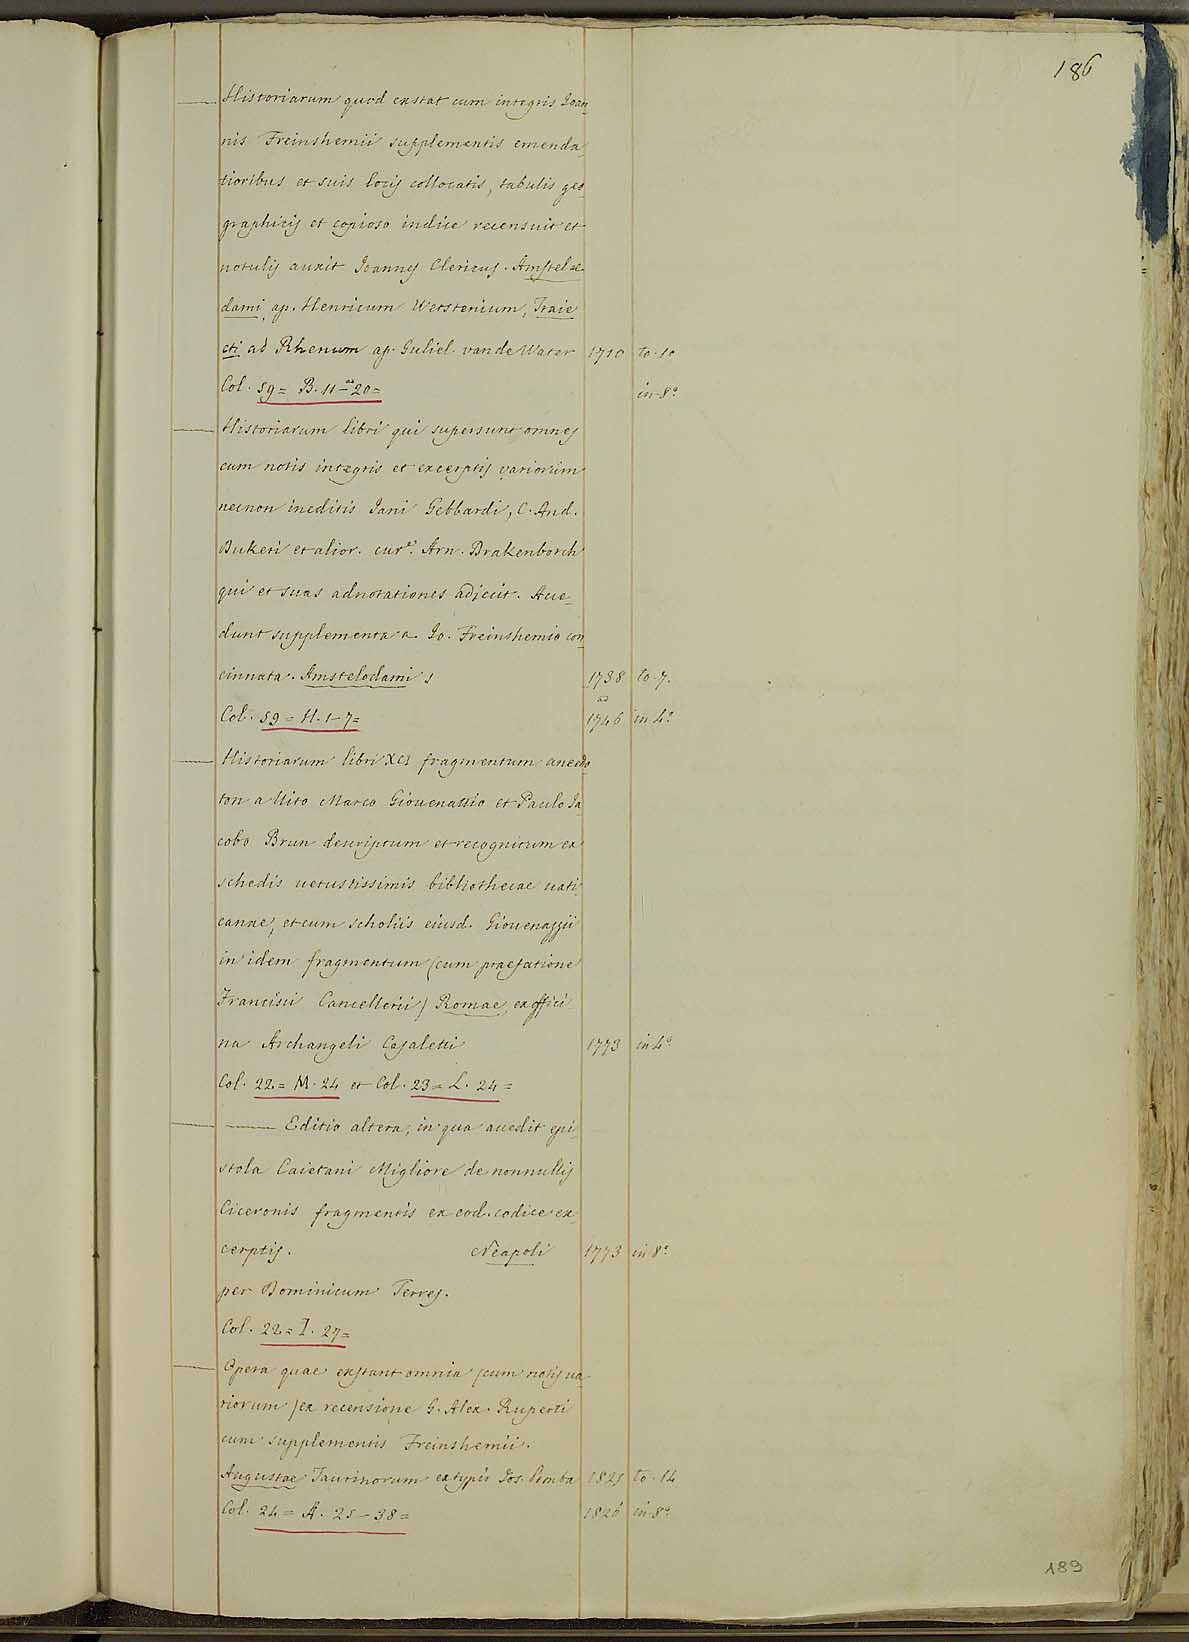 186
Historiarum quod exstat cum integris Ioan_
nis Freinshemii supplementis emenda_
tioribus et suis locis collocatis, tabulis geo_
graphicis et copioso indice recensuit et
notulis auxit Ioannes Clericus. Amstelæ
dami, ap. Henricum Wetstenium, Traie
cti ad Rhenum ap. Guliel. vande Water 1710 to. 10
Col. 59 = B. 11 ad 20 = in 8°
Historiarum libri qui supersunt omnes
cum notis integris et excerptis variorum
necnon ineditis Iani Gebbardi, C. And.
Dukeri et alior. cure. Arn. Drakenborch
qui et suas adnotationes adjecit. Acce_
dunt supplementa a Io. Freinshemio con_
cinnata. Amstelodami 1738 to. 7.
ad
Col. 59 = H. 1-7 = 1746 in 4°
Historiarum libri XCI fragmentum anecdo_
ton a Vito Marco Giouenazzio et Paulo Ia_
cobo Brun descriptum et recognitum ex
schedis uetustissimis bibliothecae uati_
canae, et cum scholiis eiusd. Giouenazzii
in idem fragmentum (cum praefatione
Francisci Cancellerii) Romae, ex offici_
na Archangeli Casaletti 1773 in 4°
Col. 22 = M. 24 et Col. 23 = L. 24 =
Editio altera, in qua accedit epi_
stola Caietani Migliore de nonnullis
Ciceronis fragmentis ex eod. codice ex_
cerptis. Neapoli 1773 in 8°
per Dominicum Terres.
Col. 22 = I. 27 =
Opera quae exstant omnia (cum notis ua_
riorum) ex recensione G. Alex. Ruperti
cum supplementis Freinshemii.
Augustae Taurinorum ex typis Ios. Pomba 1825 to. 14
Col. 24 = A. 25 - 38 = 1826 in 8°
189